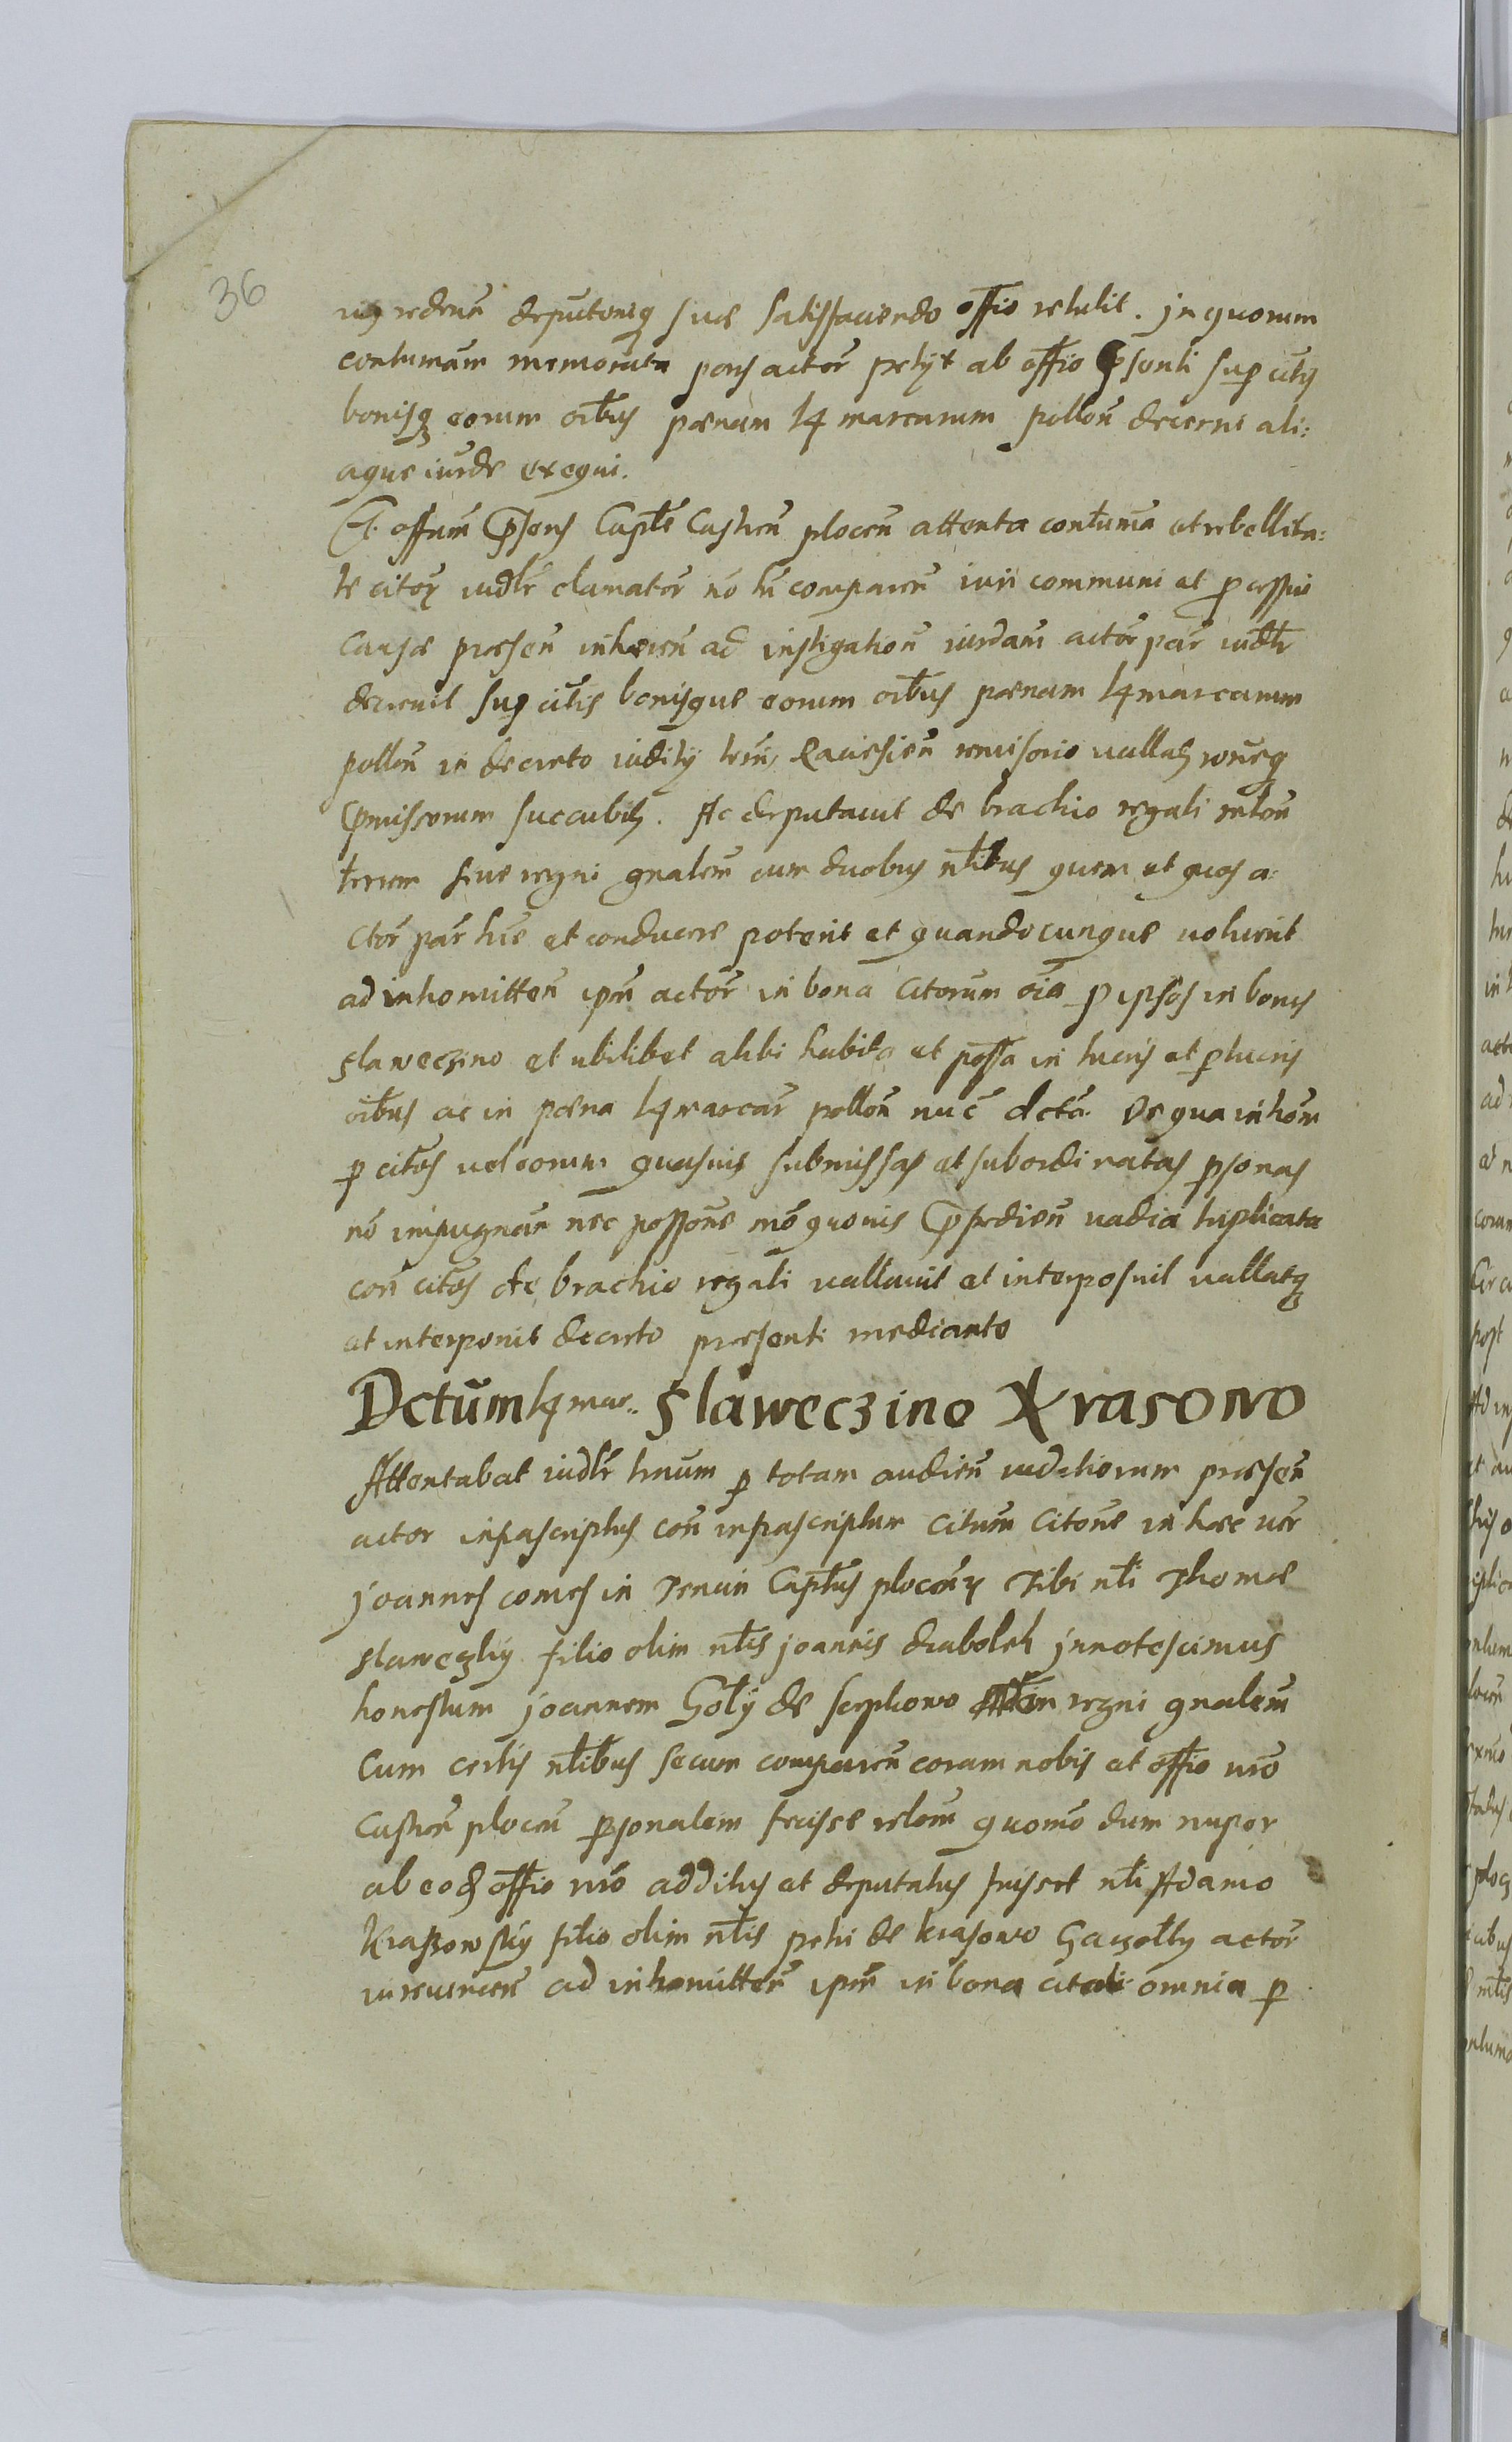 36
deputoneq suae satisfaciendo offio retulit. Jn quorum
contumam memorata pars actor petijt ab offio psenti sup citis
bonisq eorum oibus poenam 14 marcarum pollon decerni ali:
aque iurde exequi.
Et offium psens Captle Castren plocen attenta contuma et rebellita:
te citor iudlr clamator no tn comparen iuri communi et pcessui
causae praesen inhaeren ad instigation iurdam actor par iudlr
decreuit sup citis bonisque eorum oibus poenam 14 marcarum
pollon in decreto iuditij term Raciesien remissorio vallatq roneq
pmissorum succubitq. Ac deputauit de brachio regali relem
terrem siue regni gnalem cum duobus nlibus quem et quos a:
ctor par hre et conducere poterit et quandocunque voluerit
ad intromitten ipm actor in bona citorum oia p ipsos in bonis
slaweczino et ubilibet alibi habita et possa in lucris et plucris
oibus ac in poena 14 marcar pollon nuc dcta. De qua introm
p citos vel eorum quasuis submissas et subordinatas psonas
no impugnar nec possone mo quouis ppedien vadia triplicata
con citos de brachio regali vallauit et interposuit vallatq
et interponit decreto praesenti mediante
Dctum 14 mar. Slaweczino Krasowo
Attentabat iudlr trnum p totam audien iudiciorum praesen
actor infrascriptus con infrascriptum citum citone in haec ver
Joannes comes in Tenczin Captus plocen Tibi nli Thomae
slaweczky filio olim nlis joannis diabolek jnnotescimus
honestum joannem Goly de regni gnalem
Cum certis nlibus secum comparen coram nobis et offio nro
Castren plocen psonalem fecisse relem quomo dum nuper
ab eod offio nro additus et deputatus fuisset nli Adamo
Kraszowsky filio olim nlis petri de krasowo Gaczolly actor
ad intromitten ipm in bona citati omnia p